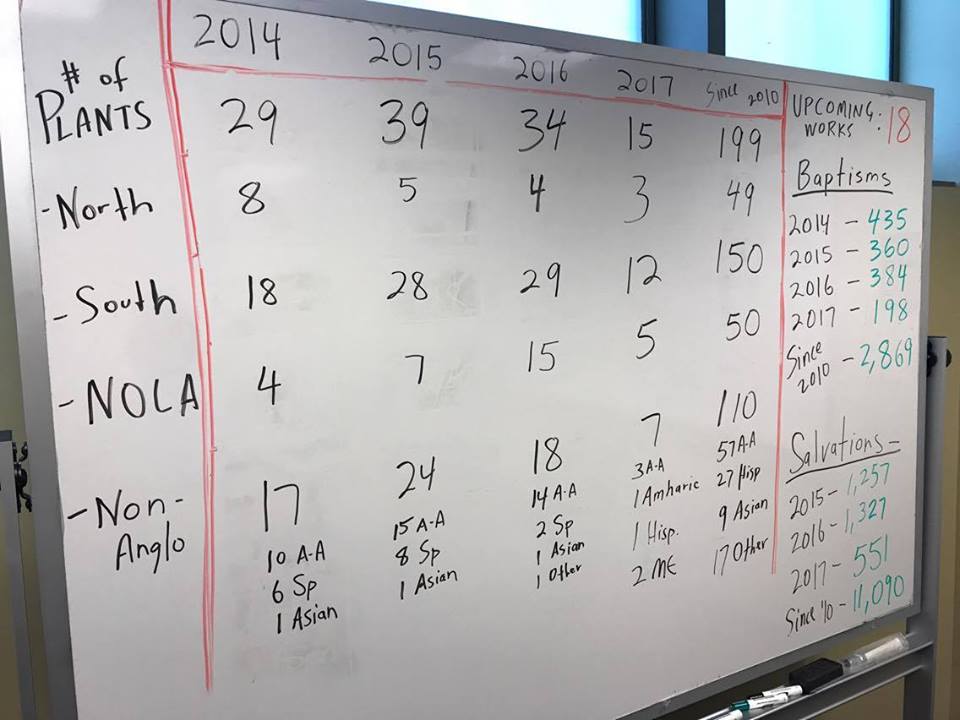 2014 2015 2016 2017 Since 2010
# of
PLANTS 29 39 34 15 199
- North 8 5 4 3 49
- South 18 28 29 12 150
- NOLA 4 7 15 5 50
- Non-
Anglo 17 24 18 7 110
10 A-A 15 A-A 14 A-A 3 A-A 57 A-A
6 Sp 8 Sp 2 Sp 1 Amharic 27 Hisp
1 Asian 1 Asian 1 Asian 1 Hisp. 9 Asian
1 Other 2 ME 17 Other
UPCOMING
WORKS : 18
Baptisms
2014 - 435
2015 - 360
2016 - 384
2017 - 198
Since
2010 - 2,869
Salvations -
2015 - 1,257
2016 - 1,327
2017 - 551
Since '10 - 11,090